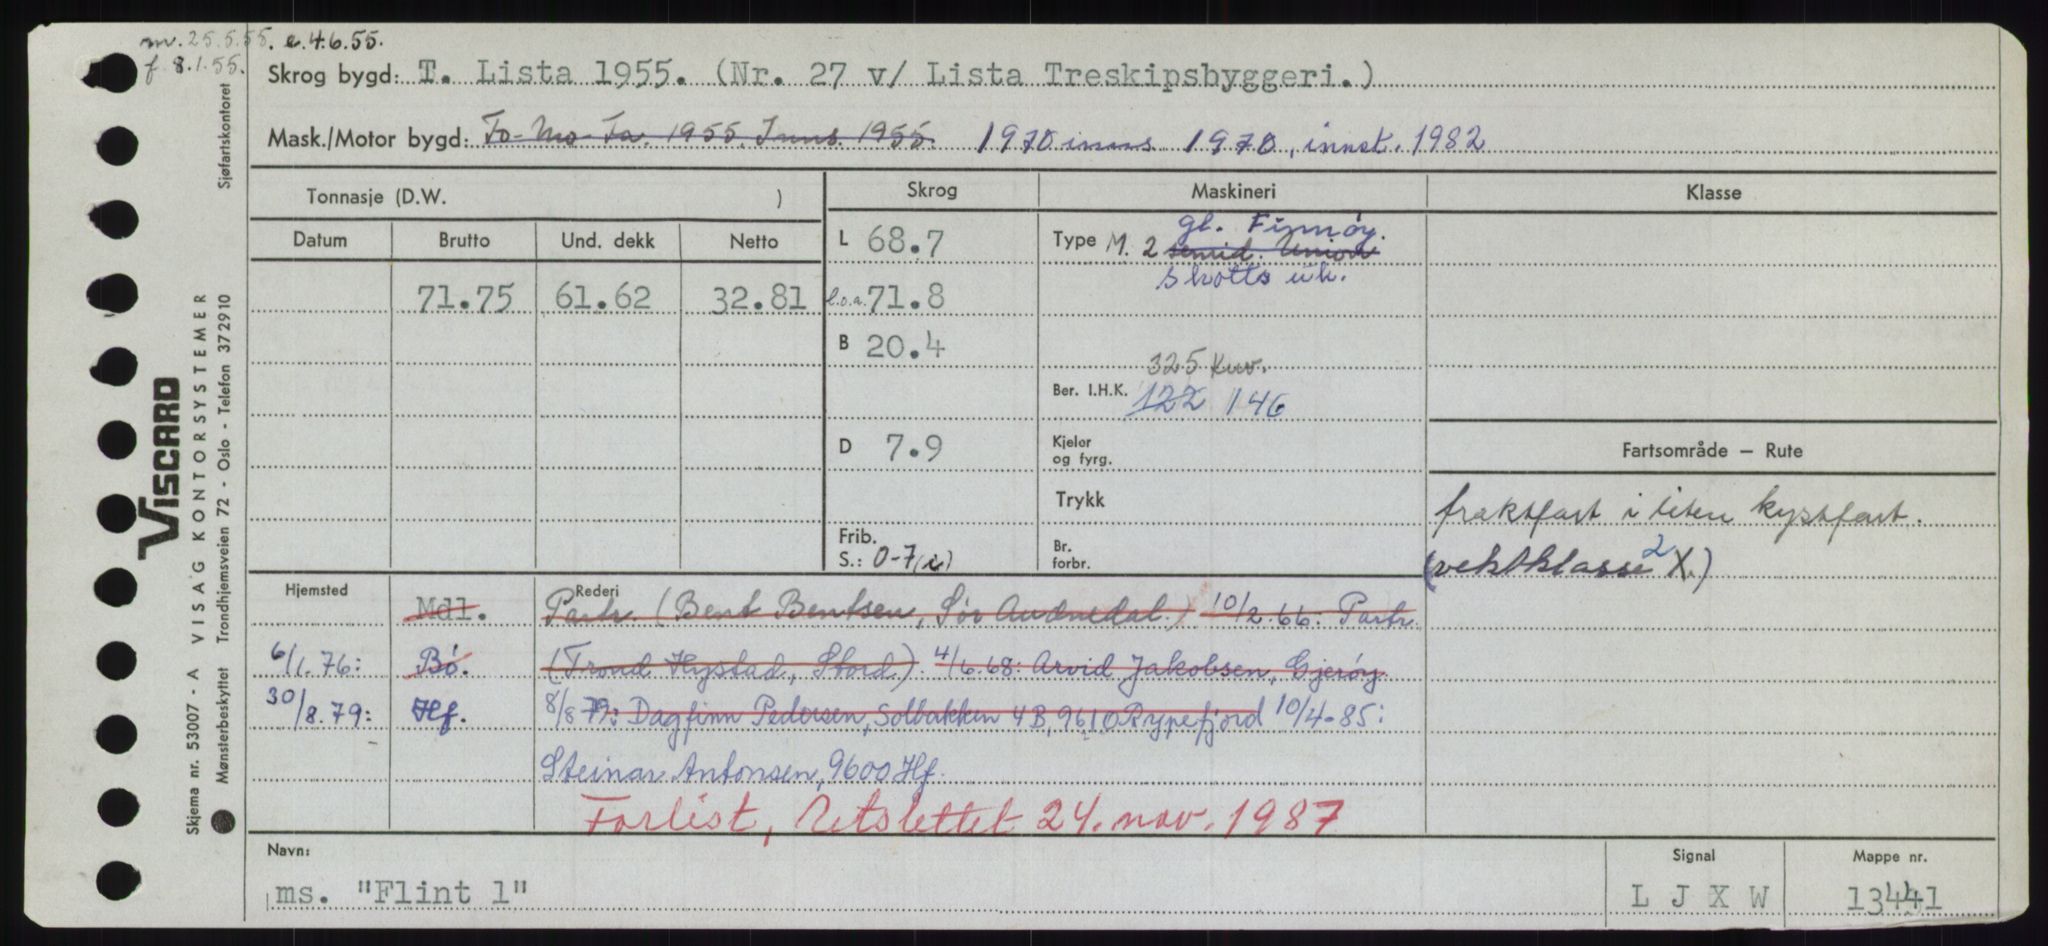 m. 25.5.55. e. 4.6.55.
f. 8.1.55.
Skrog bygd: T. Lista 1955. (Nr. 27 v/ Lista Treskipsbyggeri.)
Mask./Motor bygd: To-Mo-Fa. 1955. Inns. 1955 1970 inns 1970, innst. 1982
Tonnasje (D.W. )
Skrog
Maskineri
Klasse
Datum Brutto Und. dekk Netto
L 68.7
Type M. 2 gl. Finnøy.
semid. Union
Skotts uk.
71.75 61.62 32.81
l.o.a. 71.8
B 20.4
325 Kuv.
Ber. I.H.K. 122 146
D 7.9
Kjeler
og fyrg.
Trykk
Frib.
S.: 0-7(i)
Br.
forbr.
Fartsområde – Rute
fraktfart i liten kystfart.
(vektklasse X 2)
Hjemsted
Rederi
Mdl. Partr. (Bent Bentsen, Sør Audnedal.) 10/2.66: Partr.
6/1.76: Bø. (Trond Hystad, Stord). 4/6.68: Arvid Jakobsen, Gjerøy.
30/8.79: Hf. 8/8 79: Dagfinn Pedersen, Solbakken 4B, 9610 Rypefjord 10/4-85:
Steinar Antonsen, 9600 Hf.
Forlist, Utslettet 24. nov. 1987
Navn:
ms. "Flint 1"
Signal
L J X W
Mappe nr.
13441
Sjøfartskontoret
VISCARD
VISAG KONTORSYSTEMER
Trondhjemsveien 72 - Oslo - Telefon 372910
Skjema nr. 53007 - A
Mønsterbeskyttet